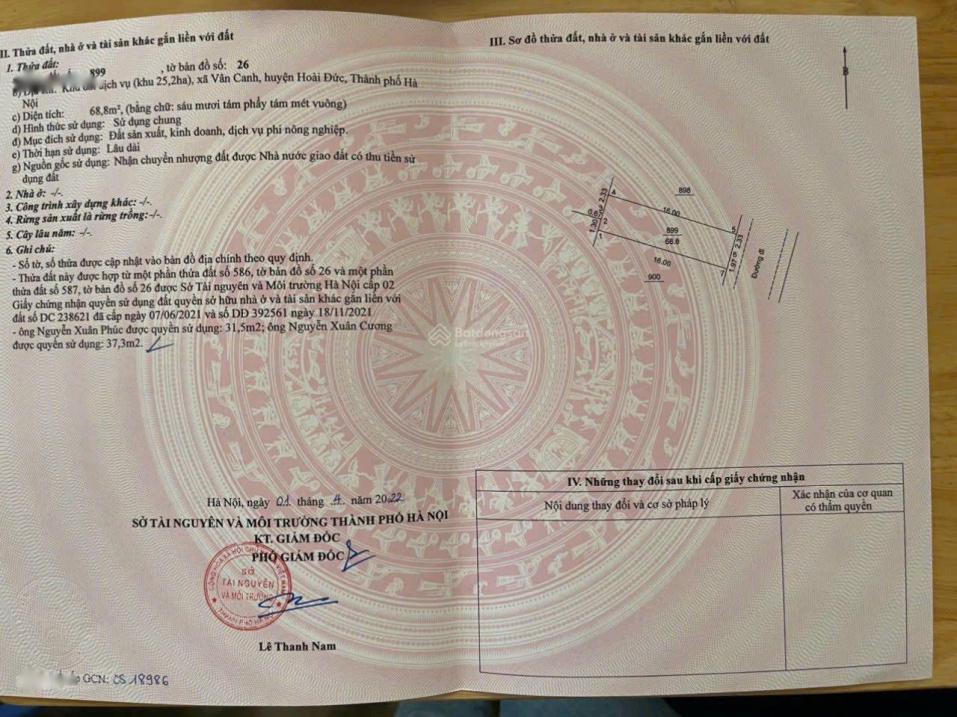 II. Thửa đất, nhà ở và tài sản khác gắn liền với đất
1. Thửa đất: 899 , tờ bản đồ số: 26
dịch vụ (khu 25,2ha), xã Vân Canh, huyện Hoài Đức, Thành phố Hà
Nội
c) Diện tích: 68,8m², (bằng chữ: sáu mươi tám phẩy tám mét vuông)
d) Hình thức sử dụng: Sử dụng chung
đ) Mục đích sử dụng: Đất sản xuất, kinh doanh, dịch vụ phi nông nghiệp.
e) Thời hạn sử dụng: Lâu dài
g) Nguồn gốc sử dụng: Nhận chuyển nhượng đất được Nhà nước giao đất có thu tiền sử
dụng đất
2. Nhà ở: -/-.
3. Công trình xây dựng khác: -/-.
4. Rừng sản xuất là rừng trồng:-/-.
5. Cây lâu năm: -/-.
6. Ghi chú:
- Số tờ, số thửa được cập nhật vào bản đồ địa chính theo quy định.
- Thửa đất này được hợp từ một phần thửa đất số 586, tờ bản đồ số 26 và một phần
thửa đất số 587, tờ bản đồ số 26 được Sở Tài nguyên và Môi trường Hà Nội cấp 02
Giấy chứng nhận quyền sử dụng đất quyền sở hữu nhà ở và tài sản khác gắn liền với
đất số DC 238621 đã cấp ngày 07/06/2021 và số DD 392561 ngày 18/11/2021
- ông Nguyễn Xuân Phúc được quyền sử dụng: 31,5m2; ông Nguyễn Xuân Cương
được quyền sử dụng: 37,3m2.
Hà Nội, ngày 01 tháng 4 năm 2022
SỞ TÀI NGUYÊN VÀ MÔI TRƯỜNG THÀNH PHỐ HÀ NỘI
KT. GIÁM ĐỐC
PHÓ GIÁM ĐỐC
SỞ
TÀI NGUYÊN
VÀ MÔI TRƯỜNG
Lê Thanh Nam
GCN: CS 18986
III. Sơ đồ thửa đất, nhà ở và tài sản khác gắn liền với đất
B
898
4
2.33
16.00
5
0.6
3
2
1.30
1
899
68.8
6
2.33
1.97
7
16.00
900
Đường đi
Batdongsan
IV. Những thay đổi sau khi cấp giấy chứng nhận
Nội dung thay đổi và cơ sở pháp lý
Xác nhận của cơ quan
có thẩm quyền